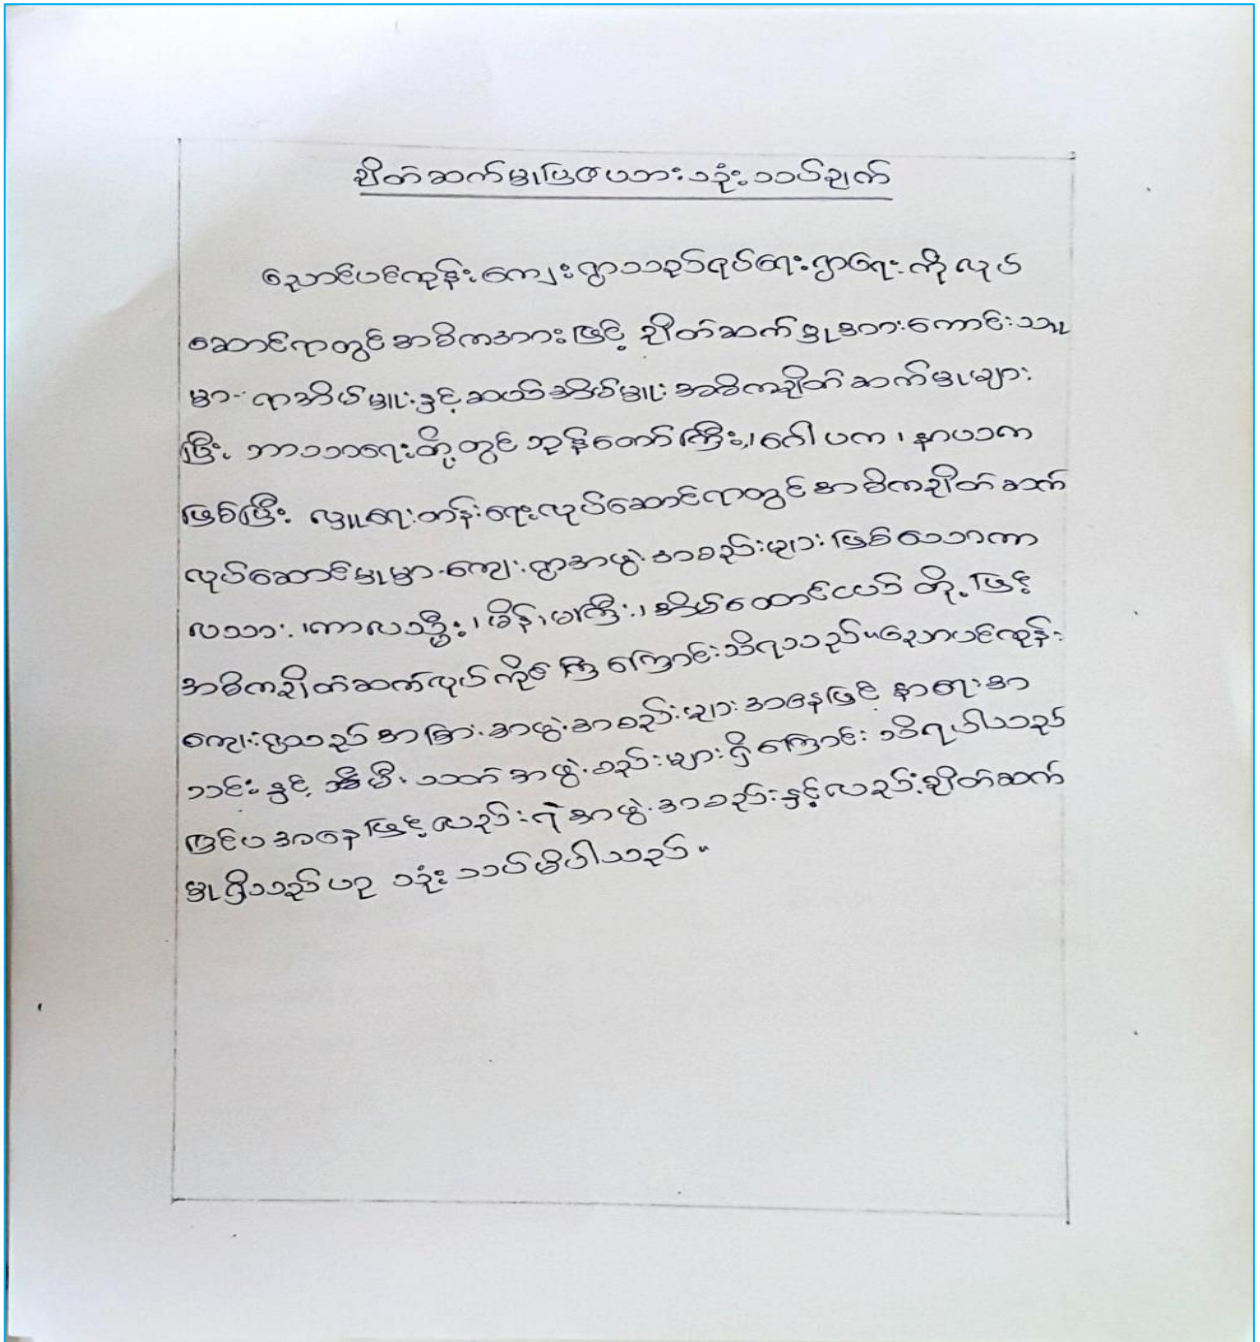 ချိတ်ဆက်မှုပြဇယားသုံးသပ်ချက်
ညောင်ပင်ကုန်းကျေးရွာသည်ရပ်ရေးရွာရေးကိုလုပ်
ဆောင်ရာတွင်အဓိကအားဖြင့် ချိတ်ဆက်မှုအားကောင်းသူ
မှာ ရာအိမ်မှူးနှင့်ဆယ်အိမ်မှူး အဓိကချိတ်ဆက်မှုများ
ပြီး ဘာသာရေးတို့တွင်ဘုန်းတော်ကြီး၊ဂေါပက၊နာယက
ဖြစ်ပြီး လူမှုရေးတန်းရေးလုပ်ဆောင်ရာတွင်အဓိကချိတ်ဆက်
လုပ်ဆောင်မှုမှာ ကျေးရွာအဖွဲ့အစည်းများဖြစ်သောကာ
လသား၊ကာလသမီး၊မိန်းမကြီး၊အိမ်ထောင်ငယ် တို့ဖြင့်
အဓိကချိတ်ဆက်လုပ်ကိုင်ကြကြောင်းသိရသည်။ညောပင်ကုန်း
ကျေးရွာသည်အခြားအဖွဲ့အစည်းများအနေဖြင့် နာရေးအ
သင်းနှင့် မီးသတ်အဖွဲ့စည်းများရှိကြောင်း သိရပါသည်
ပြင်ပအနေဖြင့်လည်းရဲအဖွဲ့အစည်းနှင့်လည်းချိတ်ဆက်
မှုရှိသည်ဟု သုံးသပ်မိပါသည်။